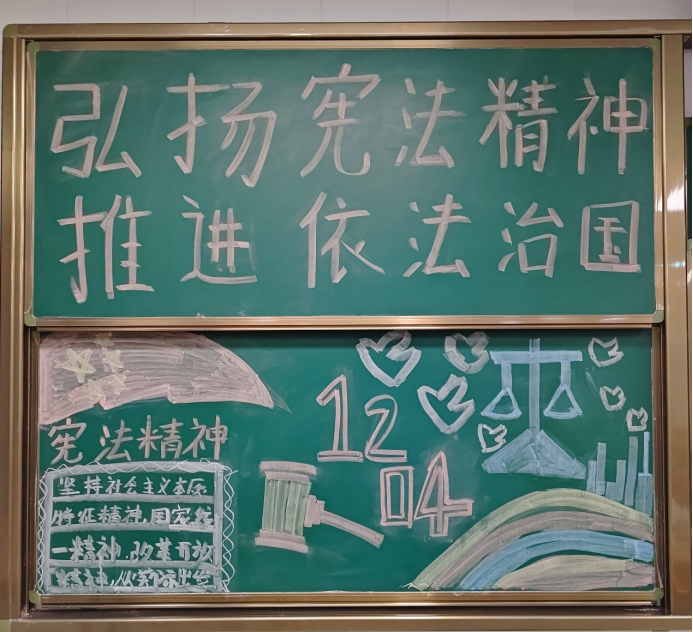 弘扬宪法精神
推进依法治国
宪法精神
坚持社会主义本质
特征精神,国家统
一精神,改革开放
精神,从实际出发
12
04